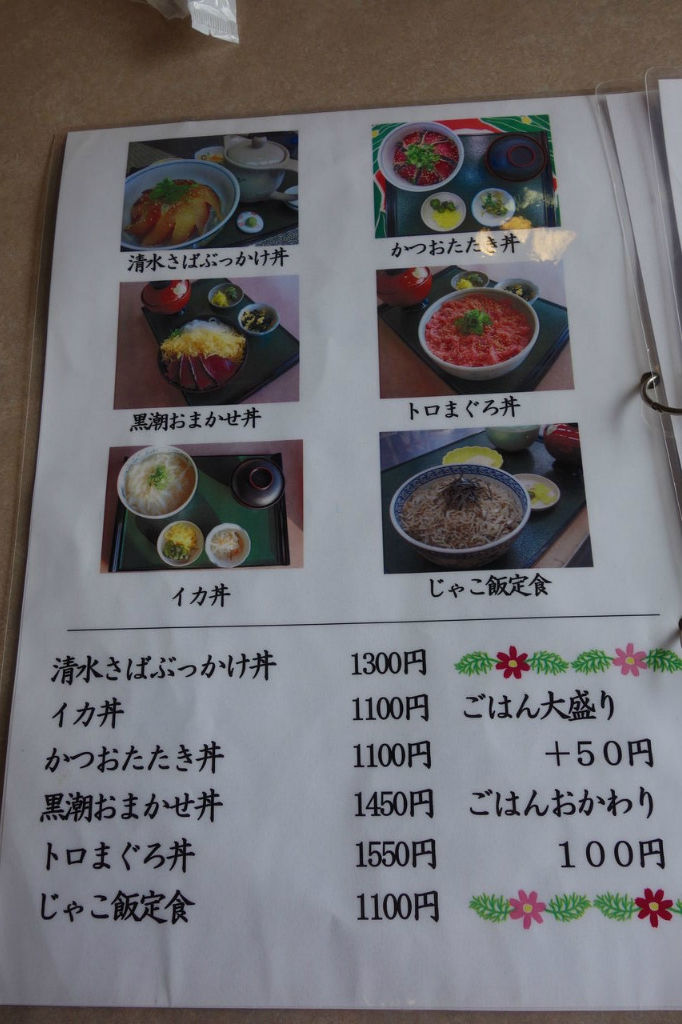 清水さばぶっかけ丼
かつおたたき丼
黒潮おまかせ丼
トロまぐろ丼
イカ丼
じゃこ飯定食
清水さばぶっかけ丼 1300円
イカ丼 1100円 ごはん大盛り
かつおたたき丼 1100円 +50円
黒潮おまかせ丼 1450円 ごはんおかわり
トロまぐろ丼 1550円 100円
じゃこ飯定食 1100円